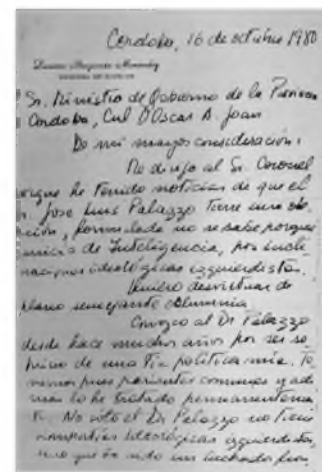 Cordoba, 16 de octubre 1980
Sr. Ministro de Gobierno de la Provincia
Cordoba, Cnl Oscar A. Joan
De mi mayor consideración:
Me dirijo al Sr. Coronel
porque he tenido noticias de que el
Dr. Jose Luis Palazzo tiene una ob-
ción, formulada no se sabe porque
servicio de Inteligencia, por incli
naciones ideológicas izquierdistas.
Quiero desvirtuar de
plano semejante calumnia
Conozco al Dr Palazzo
desde hace muchos años por ser so
brino de una tia politica mia. Te
nemos pues parientes comunes y ade
mas lo he tratado permanentemen
te. No solo el Dr Palazzo no tiene
simpatias ideológicas izquierdistas,
sino que ha sido un luchador